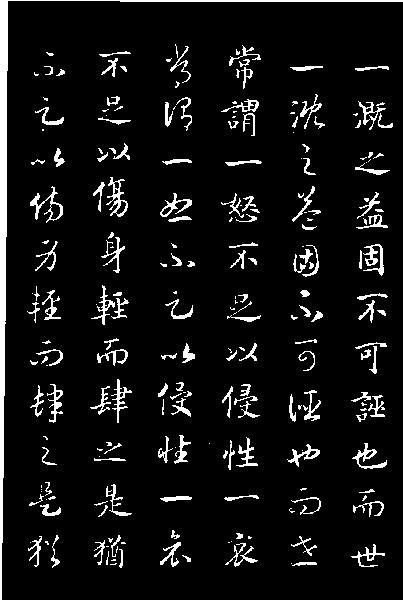 一溉之益固不可誣也而世
一溉之益固不可誣也而世
常謂一怒不足以侵性一哀
常謂一怒不足以侵性一哀
不足以傷身輕而肆之是猶
不足以傷身輕而肆之是猶